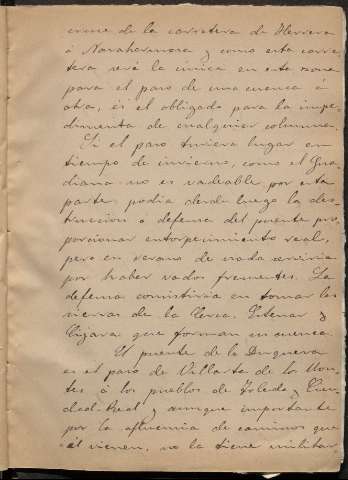 cruce de la carretera de Herrera
á Navahermosa y como esta carre-
tera será la única en esta zona
para el paso de una cuenca á
otra, es el obligado para la impe-
dimenta de cualquier columna.
Si el paso tuviera lugar en
tiempo de invierno, como el Gua-
diana no es vadeable por esta
parte podia desde luego la des-
trucción ó defensa del puente pro-
porcionar entorpecimiento real,
pero en verano de nada serviria
por haber vados frecuentes. La
defensa consistiria en tomar las
sierras de la
Cijara que forman su cuenca.
El puente de la
es el paso de Villarta de los Mon-
tes á los pueblos de Toledo y Ciu-
dad-Real y aunque importante
por la afluencia de caminos que
á él vienen, no la tiene militar